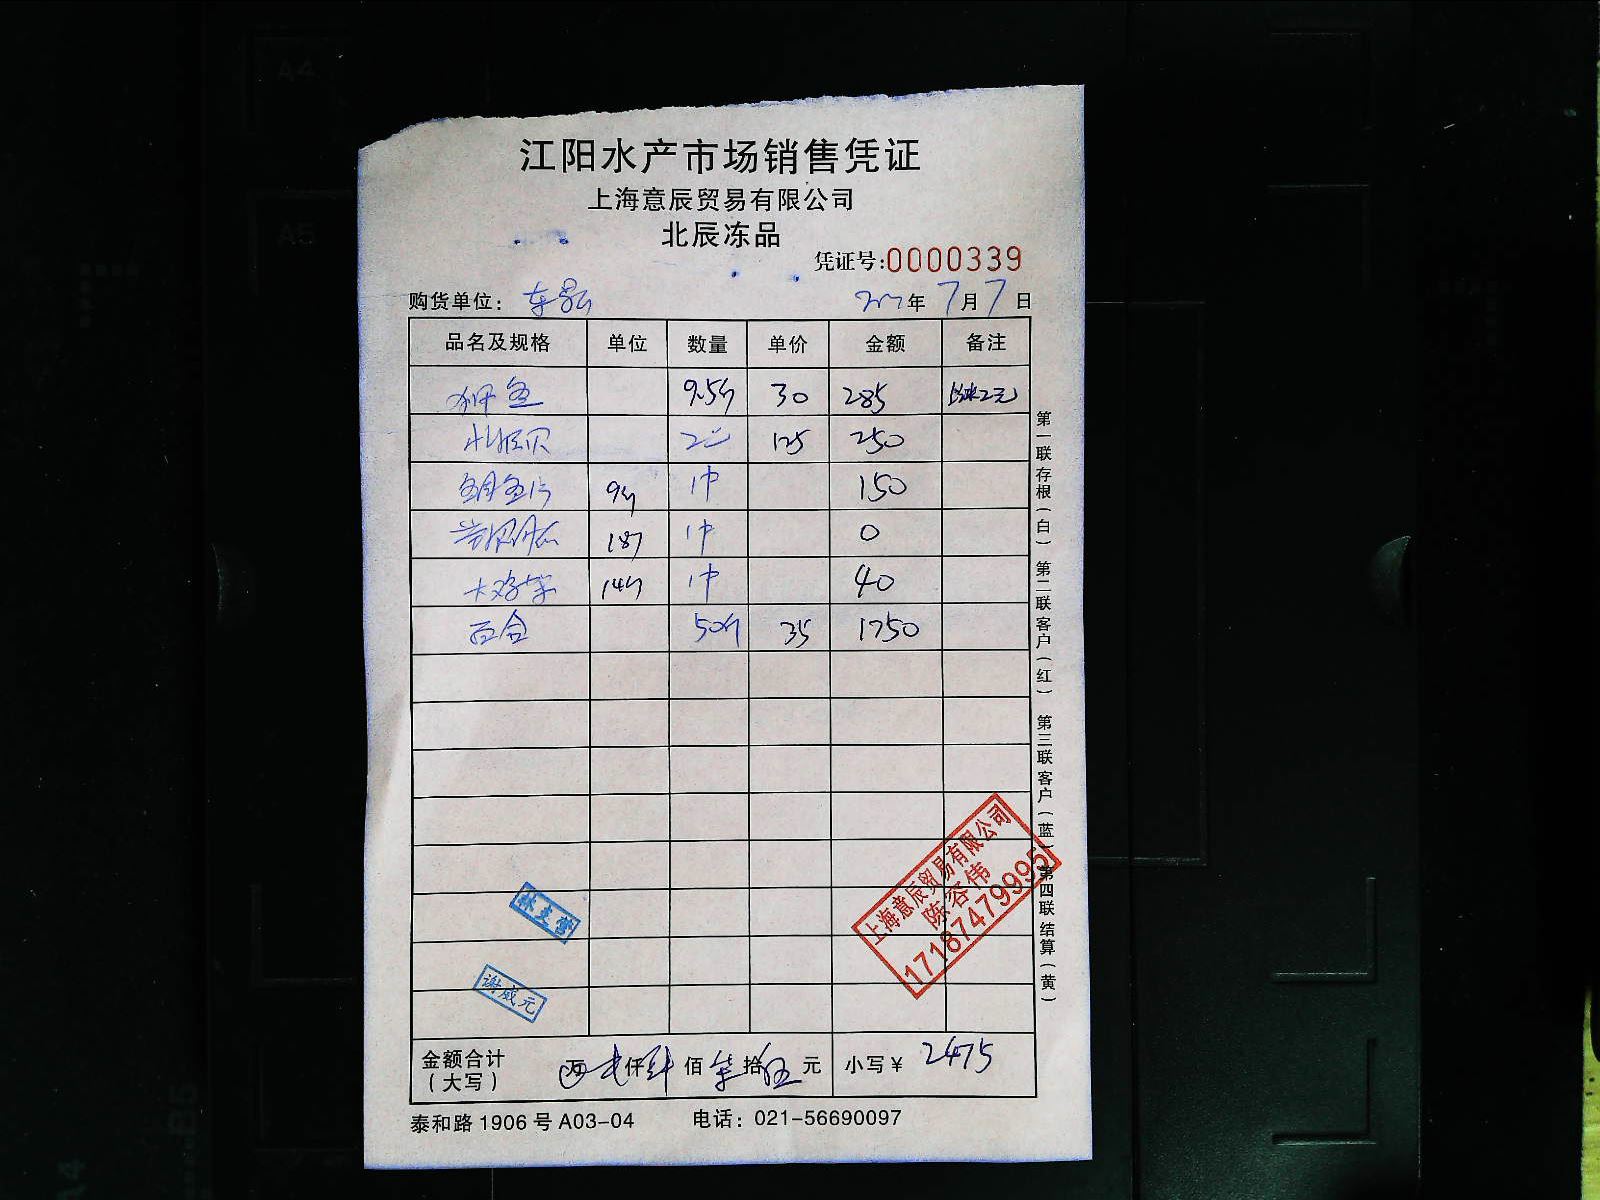 江阳水产市场销售凭证
上海意辰贸易有限公司
北辰冻品
凭证号:0000339
购货单位: 东 年7月7日
品名及规格 单位 数量 单价 金额 备注
鱼 9.5斤 30 285
贝 125 250
鱼片 9斤 1件 150
187 1件 0
大鸡 14斤 1件 40
百合 50斤 35 1750
金额合计
(大写)
万贰仟肆佰柒拾伍元 小写¥2475
泰和路1906号A03-04 电话：021-56690097
第一联存根(白) 第二联客户(红) 第三联客户(蓝) 第四联结算(黄)
上海意辰贸易有限公司
陈容伟
17187479995
谢威元